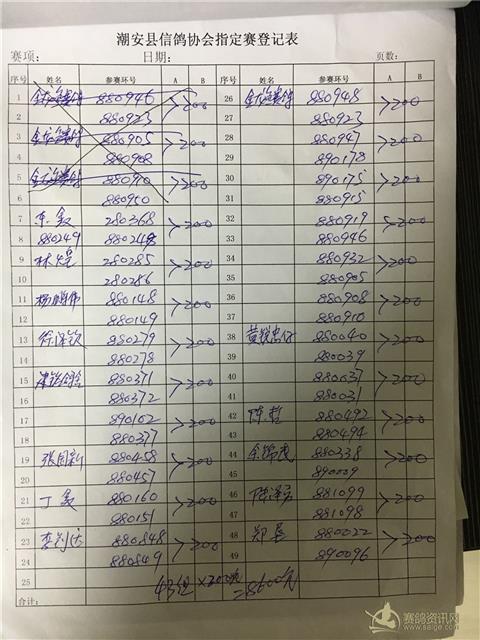 潮安县信鸽协会指定赛登记表
赛项： 日期： 页数：
序号 姓名 参赛环号 A B 序号 姓名 参赛环号 A B
1 880946 >200 26 880948 >200
2 880923 27 880923
3 880905 >200 28 880947 >200
4 880908 29 890178
5 880910 >200 30 890175 >200
6 880950 31 880915
7 280368 >200 32 880919 >200
8 880249 880248 33 880946
9 280285 >200 34 880932 >200
10 280286 35 880905
11 880148 >200 36 880908 >200
12 880149 37 880910
13 880279 >200 38 880040 >200
14 880278 39 880039
15 880371 >200 40 880037 >200
16 880372 41 880031
17 890102 >200 42 陈哲 880492 >200
18 880377 43 880494
19 张国新 880458 >200 44 880338 >200
20 880457 45 890009
21 880160 >200 46 881099 >200
22 880151 47 881098
23 880848 >200 48 880022 >200
24 880849 49 890096
25 43组×200元=8600元
合计：
赛鸽资讯网
www.saige.com